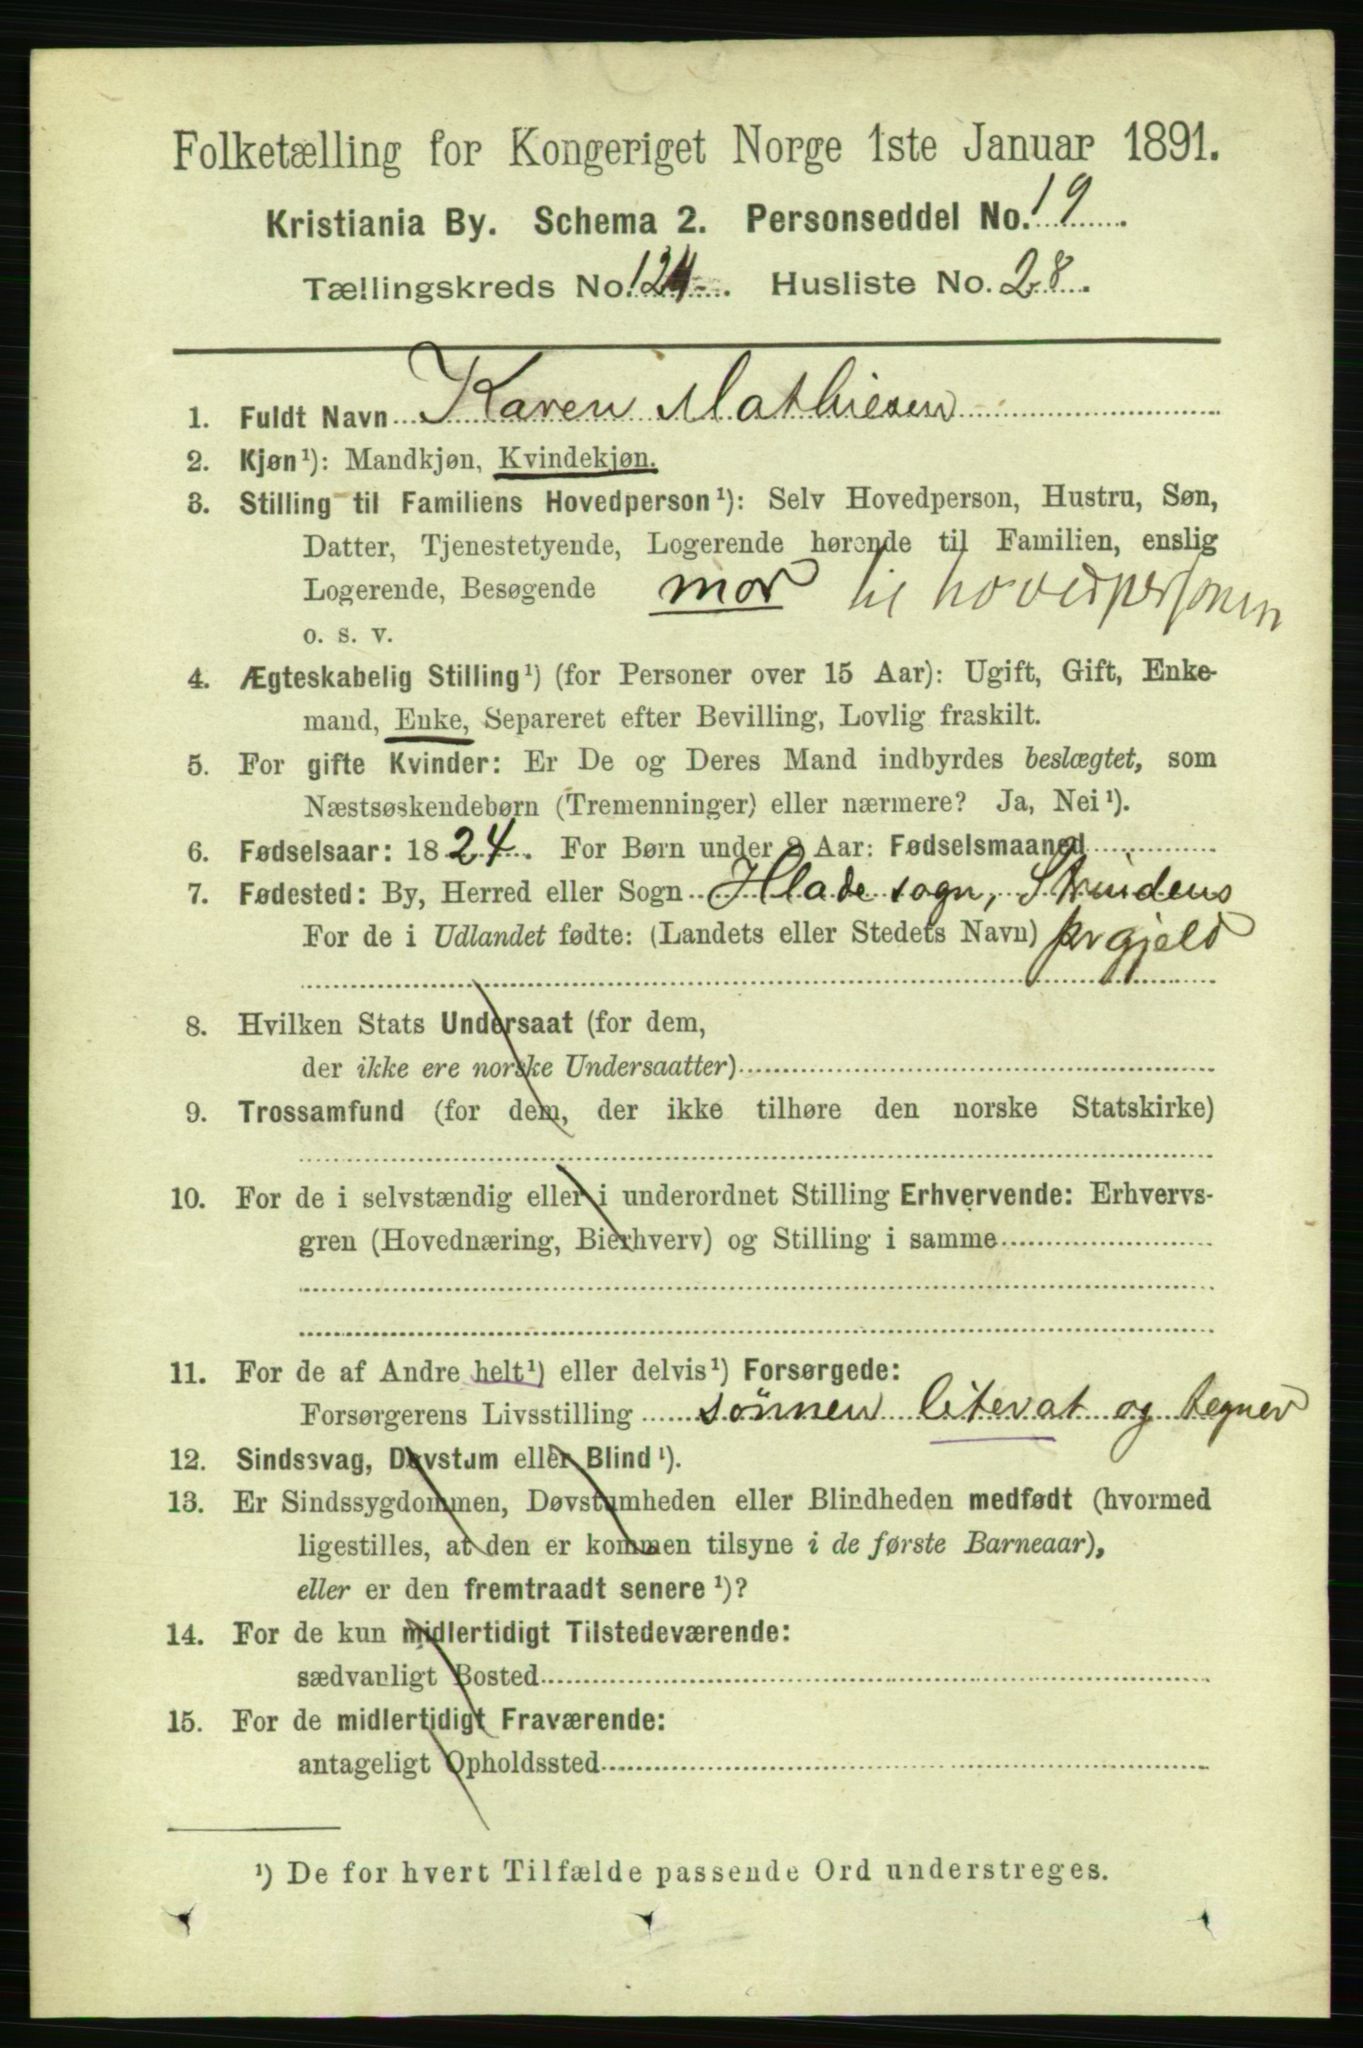 Folketælling for Kongeriget Norge 1ste Januar 1891.
Kristiania By. Schema 2. Personseddel No. 19
Tællingskreds No. 124. Husliste No. 28.
1. Fuldt Navn Karen Mathiesen
2. Kjøn¹): Mandkjøn, Kvindekjøn.
3. Stilling til Familiens Hovedperson¹): Selv Hovedperson, Hustru, Søn,
Datter, Tjenestetyende, Logerende hørende til Familien, enslig
Logerende, Besøgende mor til hovedpersonen
o. s. v.
4. Ægteskabelig Stilling¹) (for Personer over 15 Aar): Ugift, Gift, Enke-
mand, Enke, Separeret efter Bevilling, Lovlig fraskilt.
5. For gifte Kvinder: Er De og Deres Mand indbyrdes beslægtet, som
Næstsøskendebørn (Tremenninger) eller nærmere? Ja, Nei¹).
6. Fødselsaar: 1824. For Børn under 2 Aar: Fødselsmaaned
7. Fødested: By, Herred eller Sogn Hlade sogn, Strindens
For de i Udlandet fødte: (Landets eller Stedets Navn) prgjeld
8. Hvilken Stats Undersaat (for dem,
der ikke ere norske Undersaatter)
9. Trossamfund (for dem, der ikke tilhøre den norske Statskirke)
10. For de i selvstændig eller i underordnet Stilling Erhvervende: Erhvervs-
gren (Hovednæring, Bierhverv) og Stilling i samme
11. For de af Andre helt¹) eller delvis¹) Forsørgede:
Forsørgerens Livsstilling sönnen literat og tegner
12. Sindssvag, Døvstum eller Blind¹).
13. Er Sindssygdommen, Døvstumheden eller Blindheden medfødt (hvormed
ligestilles, at den er kommen tilsyne i de første Barneaar),
eller er den fremtraadt senere¹)?
14. For de kun midlertidigt Tilstedeværende:
sædvanligt Bosted
15. For de midlertidigt Fraværende:
antageligt Opholdssted
¹) De for hvert Tilfælde passende Ord understreges.